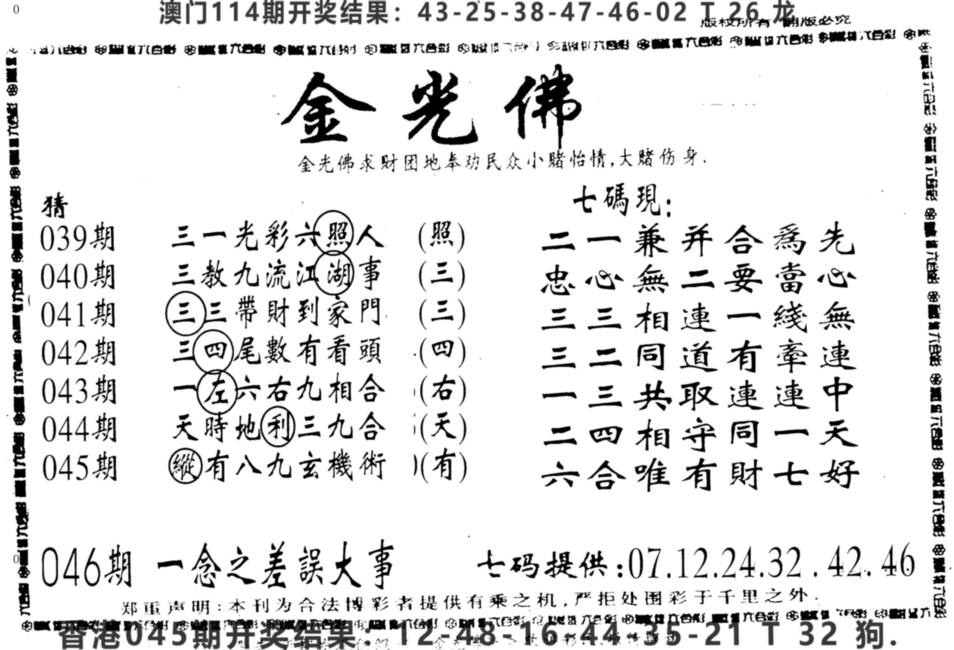 澳门114期开奖结果：43-25-38-47-46-02 T 26 龙
版权所有 翻版必究
金光佛
金光佛求财团地奉劝民众小赌怡情,大赌伤身.
猜
七碼現:
039期 三一光彩六照人 (照) 二一兼并合爲先
040期 三教九流江湖事 (三) 忠心無二要當心
041期 三三帶財到家門 (三) 三三相連一綫無
042期 三四尾數有看頭 (四) 三二同道有牽連
043期 一左六右九相合 (右) 一三共取連連中
044期 天時地利三九合 (天) 二四相守同一天
045期 縱有八九玄機術 (有) 六合唯有財七好
046期 一念之差誤大事 七码提供:07.12.24.32.42.46
郑重声明:本刊为合法博彩者提供有乘之机,严拒处围彩于千里之外.
香港045期开奖结果：12-48-16-44-35-21 T 32 狗.